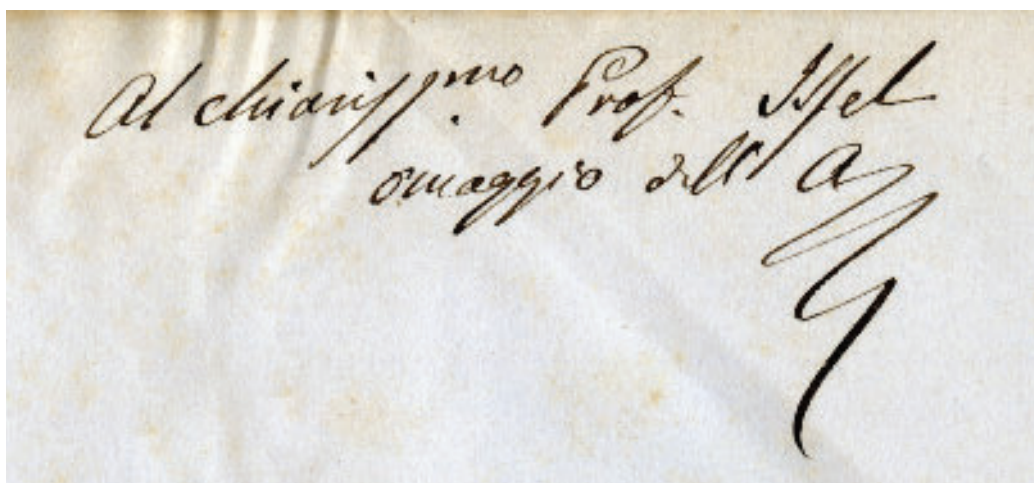 Al chiariss.mo Prof. Issel
omaggio dell'A